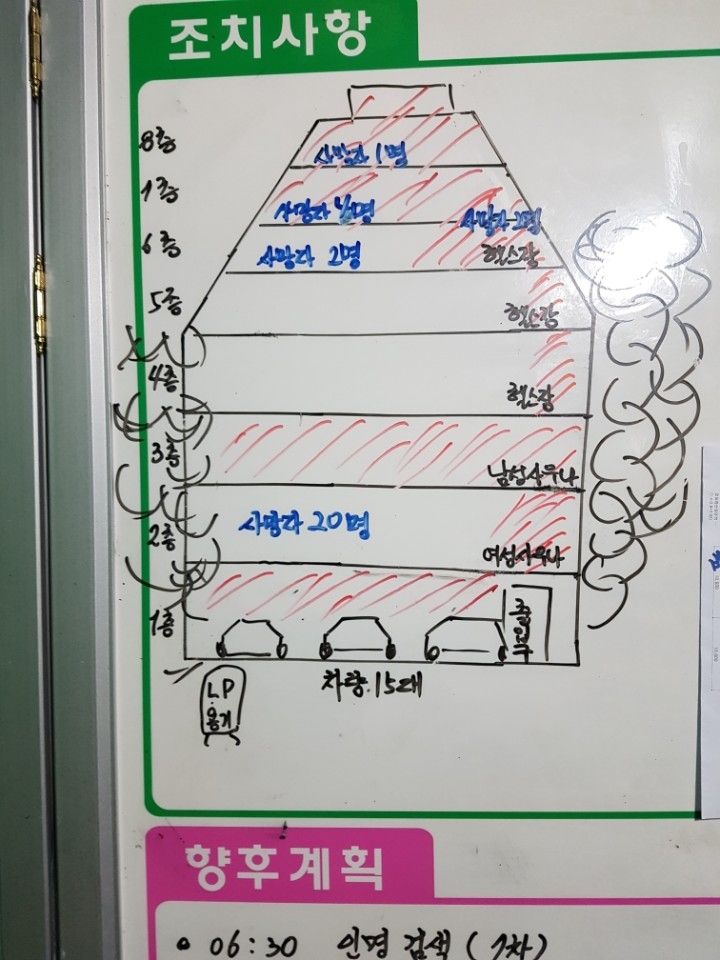 조치사항
8층
사망자 1명
7층
사망자 4명
사망자 2명
6층
사망자 2명
헬스장
5층
헬스장
4층
헬스장
3층
남성사우나
2층
사망자 20명
여성사우나
1층
출입구
LP
용기
차량 15대
향후계획
• 06:30 인명 검색 (1차)